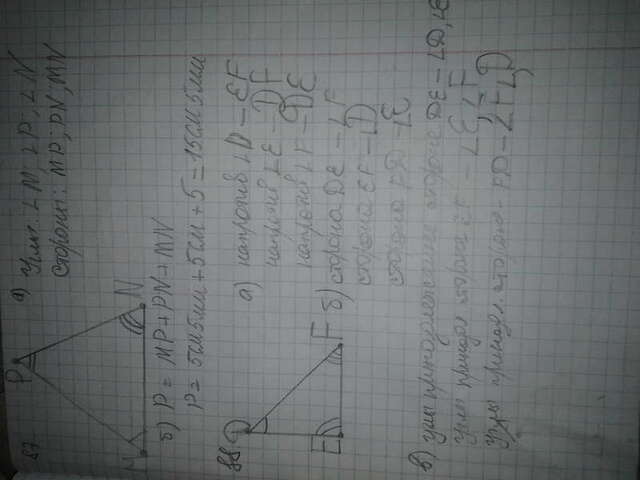 87
P
M
N
а) Углы: ∠M; ∠P; ∠N
Стороны: MP; PN; MN
б) P = MP + PN + MN
P = 5см5мм + 5см + 5 = 15см5мм
88
D
E
F
а) напротив ∠D – EF
напротив ∠E – DF
напротив ∠F – DE
б) сторона DE – ∠F
сторона EF – ∠D
сторона FD – ∠E
в) углы прилежащие стороне DE – ∠D, ∠E
Углы прилеж стороне EF – ∠E, ∠F
Углы прилеж. стороне – FD – ∠F ∠D